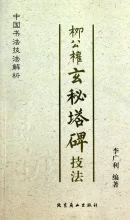 中国书法技法解析
柳公權
玄秘塔碑
技法
李广利 编著
北京燕山出版社